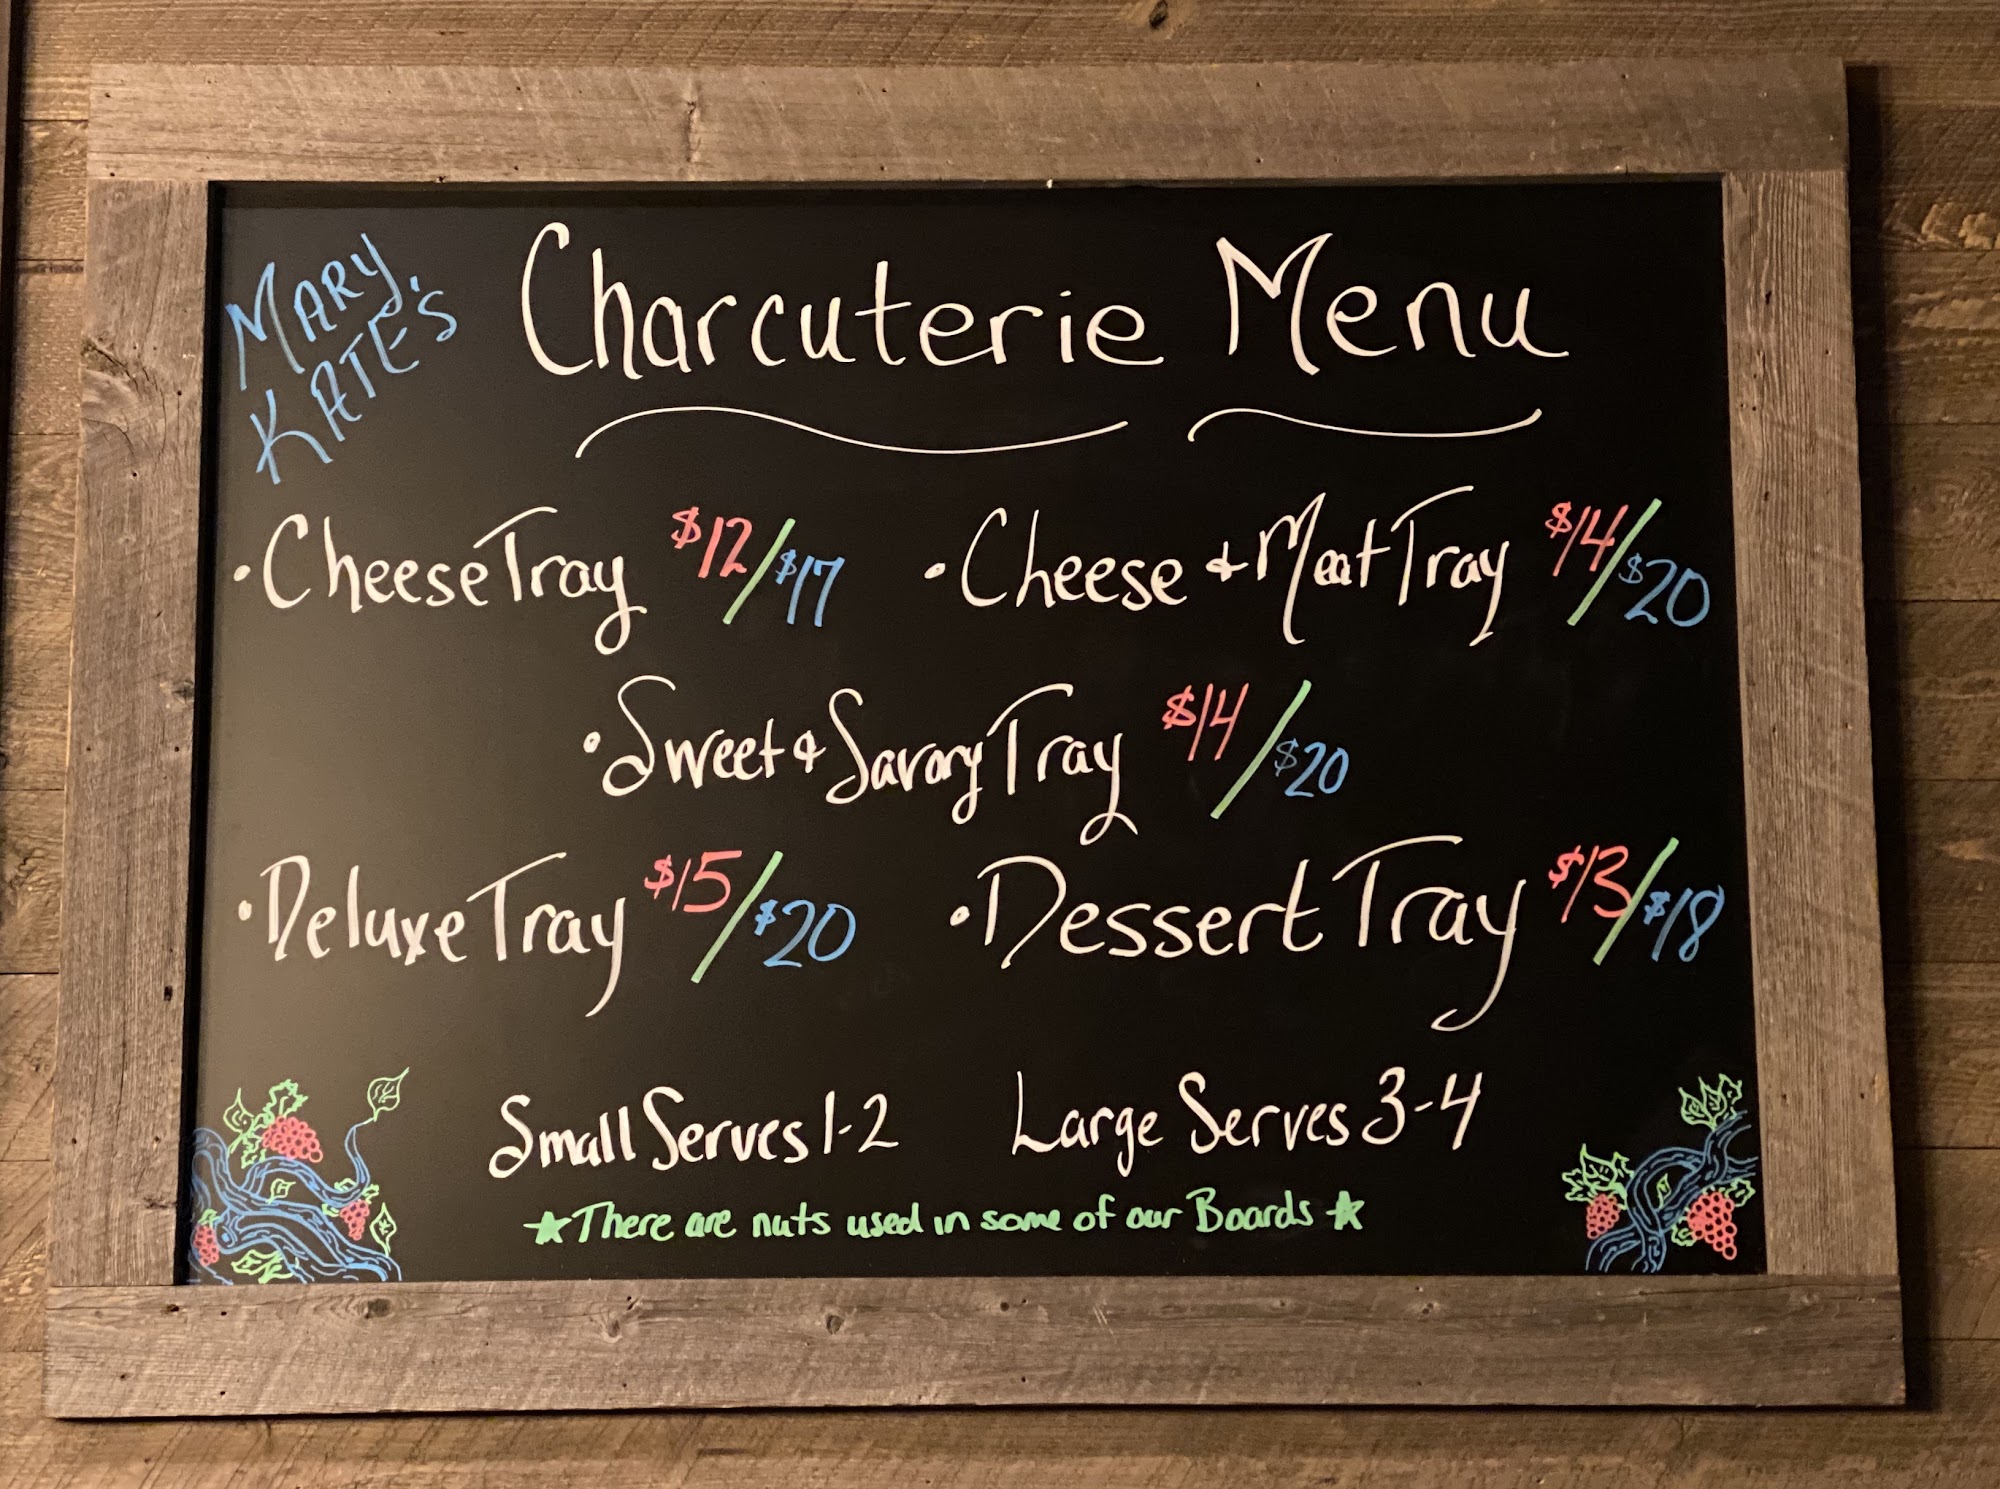 MARY
KATE'S
Charcuterie Menu
• Cheese Tray $12/$17
• Cheese & Meat Tray $14/$20
• Sweet & Savory Tray $14/$20
• Deluxe Tray $15/$20
• Dessert Tray $13/$18
Small Serves 1-2
Large Serves 3-4
★There are nuts used in some of our Boards★